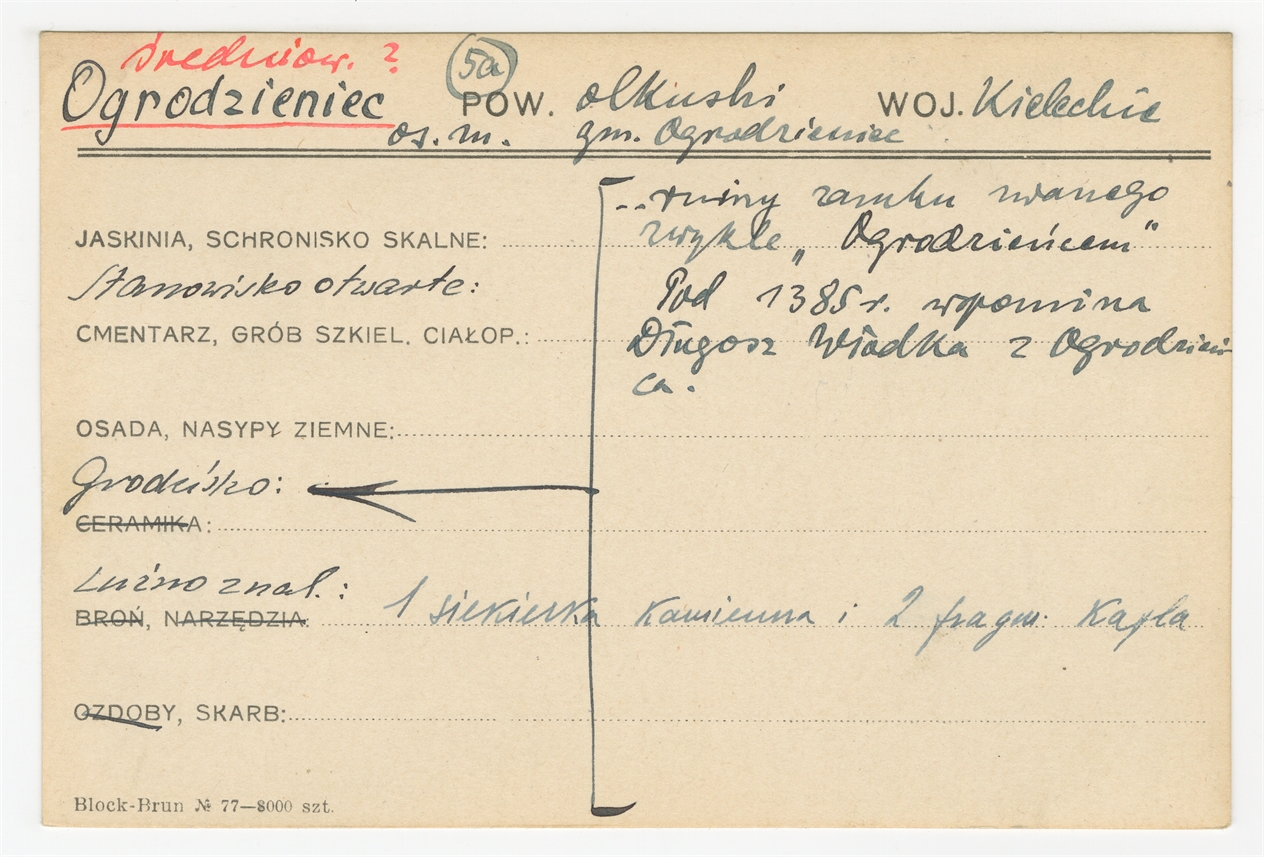 średniow. ?
5a
Ogrodzieniec POW. olkuski WOJ. Kieleckie
os. m. gm. Ogrodzieniec
...ruiny zamku zwanego
JASKINIA, SCHRONISKO SKALNE: zwykle „Ogrodzieńcem"
Stanowisko otwarte:
Pod 1385 r. wspomina
CMENTARZ, GRÓB SZKIEL. CIAŁOP.: Długosz Włodka z Ogrodzień
ca.
OSADA, NASYPY ZIEMNE:
Grodzisko:
CERAMIKA:
Luźno znal.:
BROŃ, NARZĘDZIA 1 siekierka kamienna i 2 fragm. Kafla
OZDOBY, SKARB:
Block-Brun № 77—8000 szt.